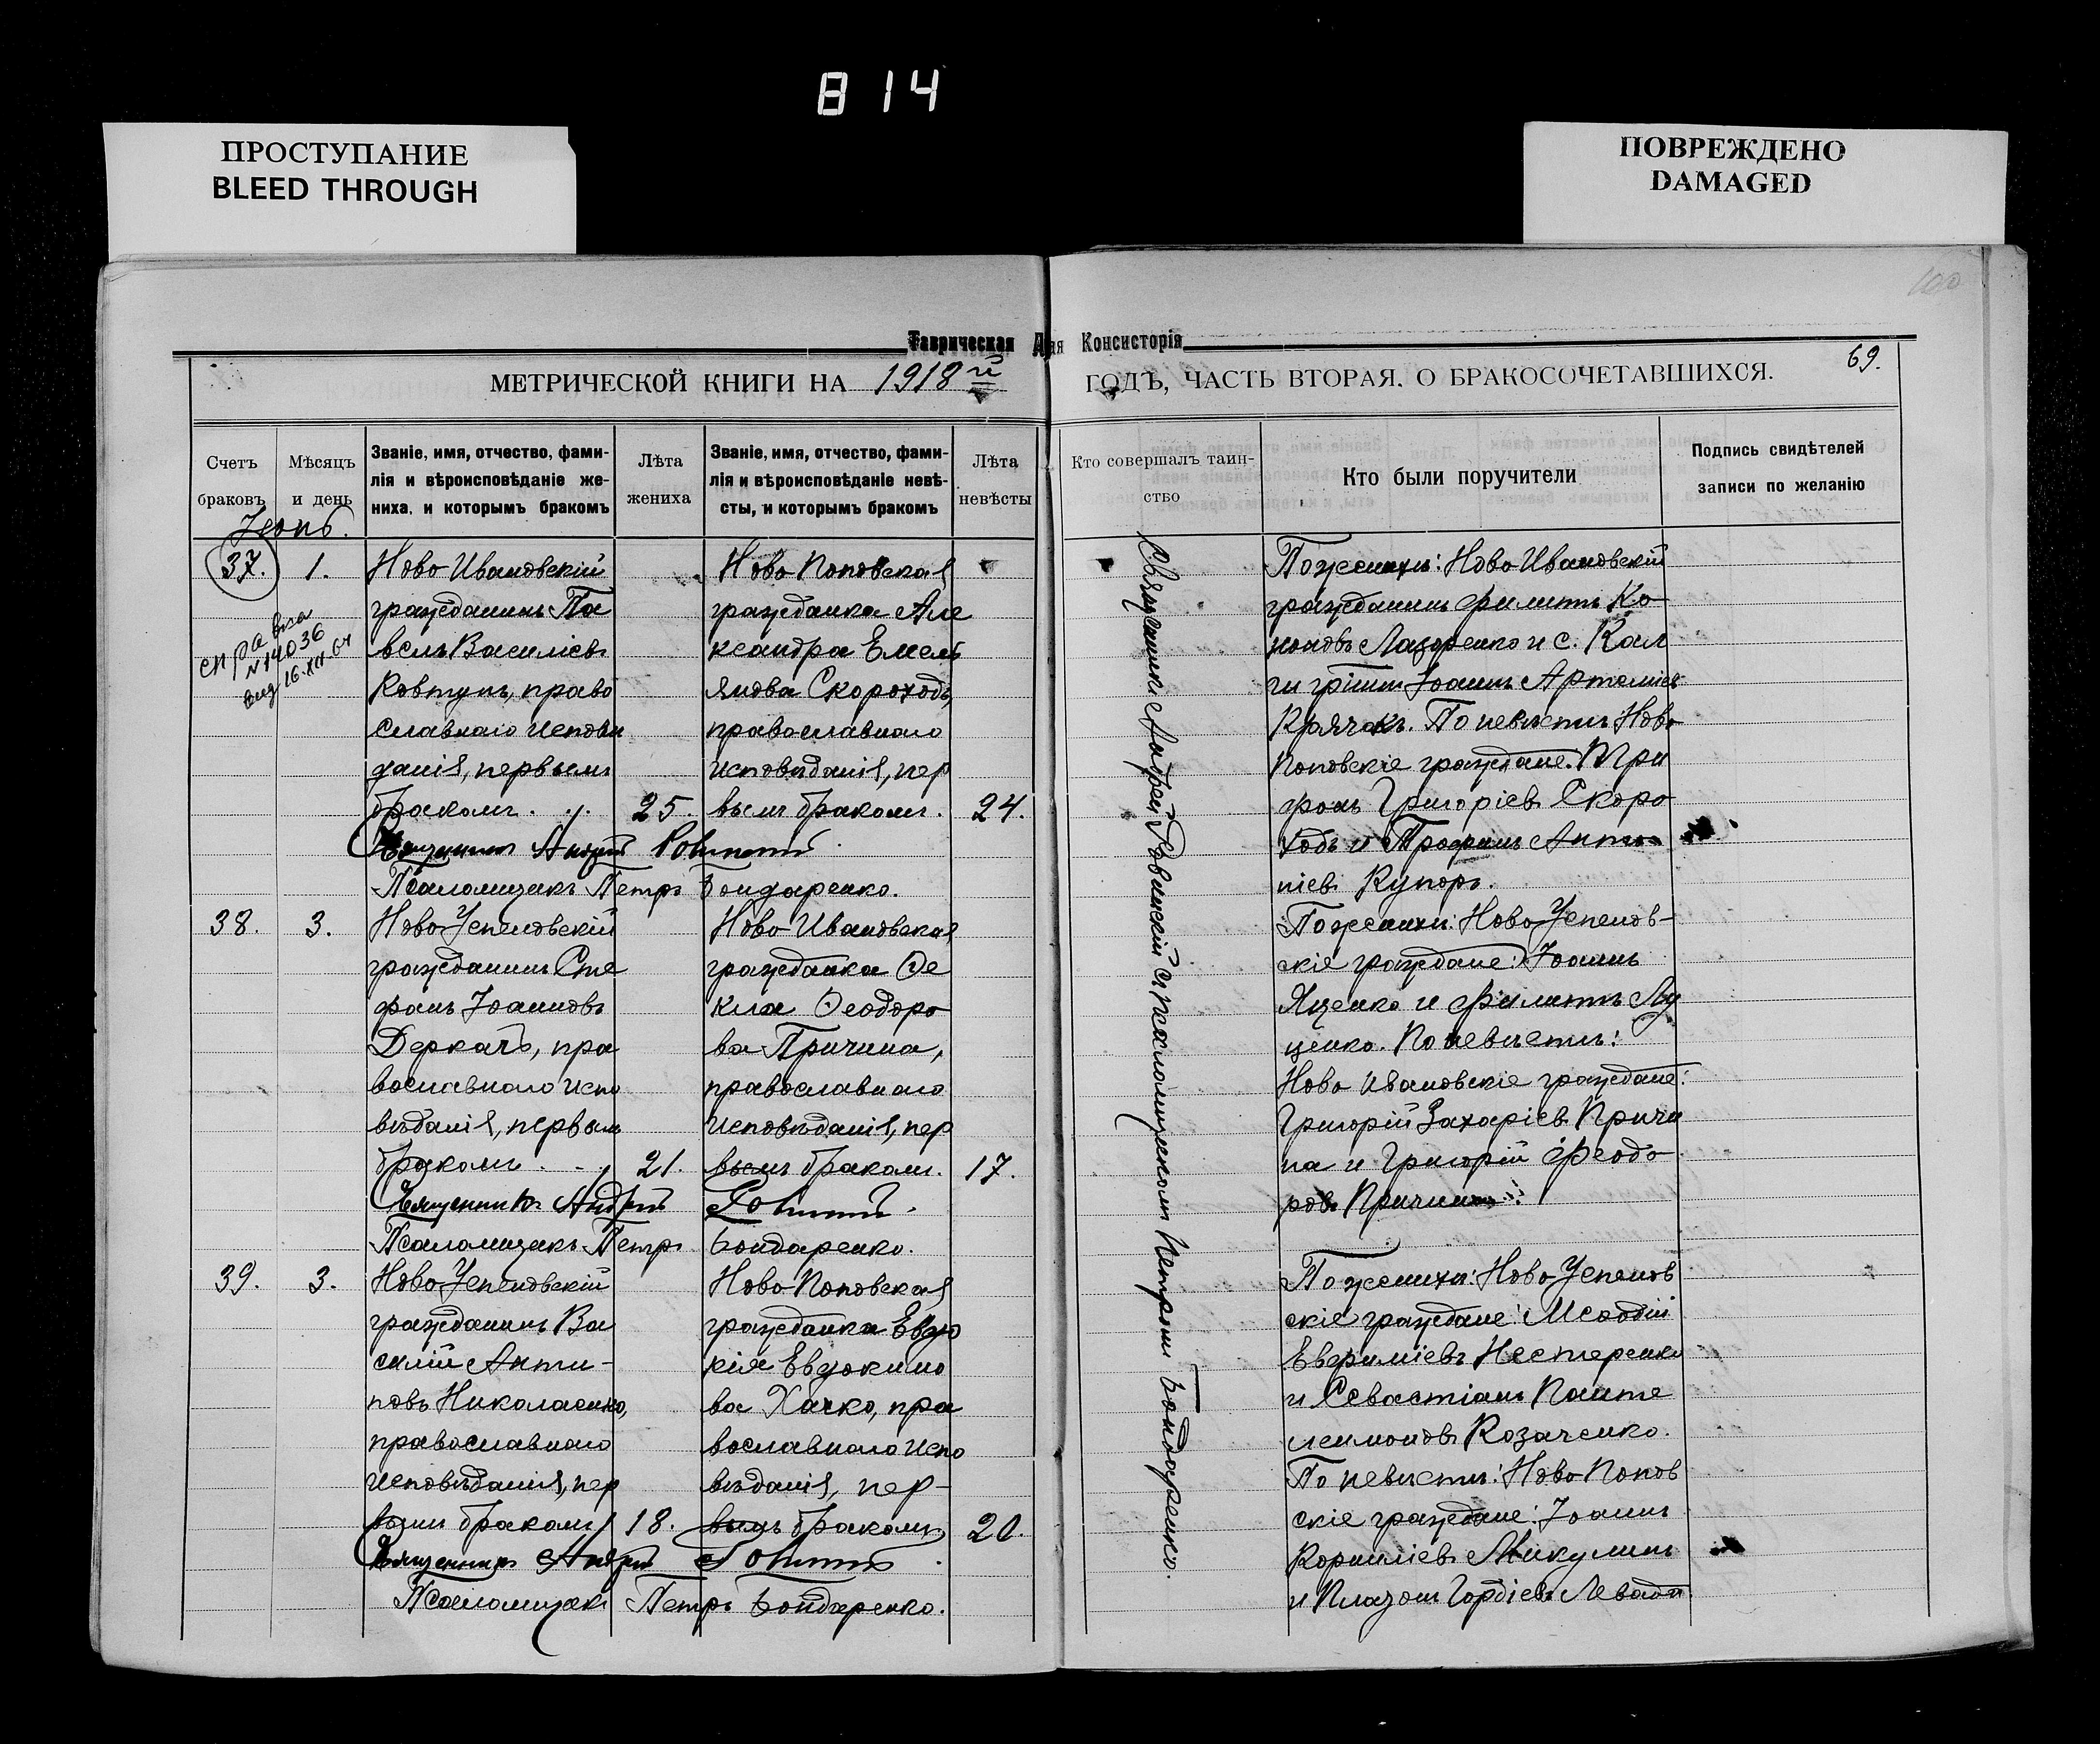 814
ПРОСТУПАНИЕ
BLEED THROUGH
ПОВРЕЖДЕНО
DAMAGED
100
Таврическая Д я Консисторія
69.
МЕТРИЧЕСКОЙ КНИГИ НА 1918й
ГОДЪ, ЧАСТЬ ВТОРАЯ, О БРАКОСОЧЕТАВШИХСЯ.
Счетъ
браковъ
Мѣсяцъ
и день
Званіе, имя, отчество, фами-
лія и вѣроисповѣданіе же-
ниха, и которымъ бракомъ
Лѣта
жениха
Званіе, имя, отчество, фами-
лія и вѣроисповѣданіе невѣ-
сты, и которымъ бракомъ
Лѣта
невѣсты
Кто совершалъ таин-
ство
Кто были поручители
Подпись свидѣтелей
записи по желанію
Іюнь.
37.
справка
№ 14036
вид 16.XII.64
1.
Ново Ивановскій
гражданинъ Па
велъ Василіевъ
Ковтунъ, право
славнаго исповѣ
данія, первымъ
бракомъ.
25.
Ново Поповская
гражданка Але
ксандра Емелі
янова Скороходъ,
православнаго
исповѣданія, пер
вымъ бракомъ.
24.
Священникъ Андрей
Псаломщикъ Петръ Бондаренко.
По женихѣ: Ново Ивановскій
гражданинъ Филиппъ Ко
ноновъ Лазаренко и с.
Іоаннъ Артеміевъ
Крячокъ. По невѣстѣ: Ново
Поповскіе граждане: Три
фонъ Григоріевъ Скоро
ходъ и Трофимъ Анто
ніевъ Купоръ.
38.
3.
Ново Успеновскій
гражданинъ Сте
фанъ Іоанновъ
Деркачъ, пра
вославнаго испо
вѣданія, первымъ
бракомъ.
21.
Ново Ивановская
гражданка Ѳе
кла Ѳеодоро
ва Причина,
православнаго
исповѣданія, пер
вымъ бракомъ.
17.
Священникъ Андрей
Псаломщикъ Петръ Бондаренко.
По женихѣ: Ново Успенов-
скіе граждане: Іоаннъ
Яценко и Филиппъ Лу
ценко. По невѣстѣ:
Ново Ивановскіе граждане:
Григорій Захаріевъ Причи
на и Григорій Феодо
ровъ Причина.
39.
3.
Ново Успеновскій
гражданинъ Ва
силій Анти-
повъ Николаенко,
православнаго
исповѣданія, пер
вымъ бракомъ
18.
Ново Поповская
гражданка Евдо
кія Евдокимо
ва Хачко, пра
вославнаго испо
вѣданія, пер-
вымъ бракомъ
20.
Священникъ Андрей
Псаломщикъ Петръ Бондаренко.
По женихѣ: Ново Успенов
скіе граждане: Меѳодій
Евфиміевъ Нестеренко
и Севастіанъ Панте
леимоновъ Козаченко.
По невѣстѣ: Ново Попов
скіе граждане: Іоаннъ
Корниліевъ Микулинъ
и Гордіевъ
Священникъ Андрей и псаломщикомъ Петромъ Бондаренко.